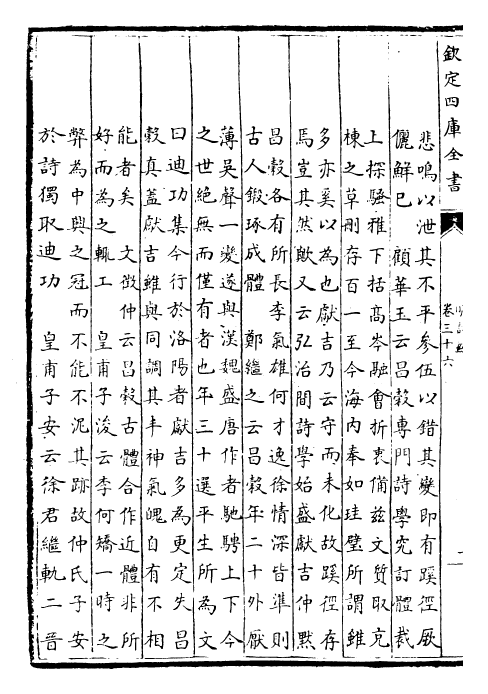 欽定四庫全書
卷三十六
悲鳴以泄其不平參伍以錯其變即有蹊徑厥
儷鮮已　顧華玉云昌穀專門詩學究訂體裁
上探騷雅下括高岑融會折衷備茲文質取充
棟之草刪存百一至今海内奉如珪璧所謂雖
多亦奚以為也獻吉乃云守而未化故蹊徑存
焉豈其然歟又云弘治間詩學始盛獻吉仲默
昌穀各有所長李氣雄何才逸徐情深皆準則
古人鍛琢成體　鄭繼之云昌穀年二十外厭
薄吳聲一變遂與漢魏盛唐作者馳騁上下今
之世絶無而僅有者也年三十選平生所為文
曰迪功集今行於洛陽者獻吉多為更定失昌
穀真蓋獻吉雖與同調其丰神氣魄自有不相
能者矣　文徴仲云昌穀古體合作近體非所
好而為之輒工　皇甫子浚云李何矯一時之
弊為中興之冠而不能不泥其跡故仲氏子安
於詩獨取迪功　皇甫子安云徐君繼軌二晉